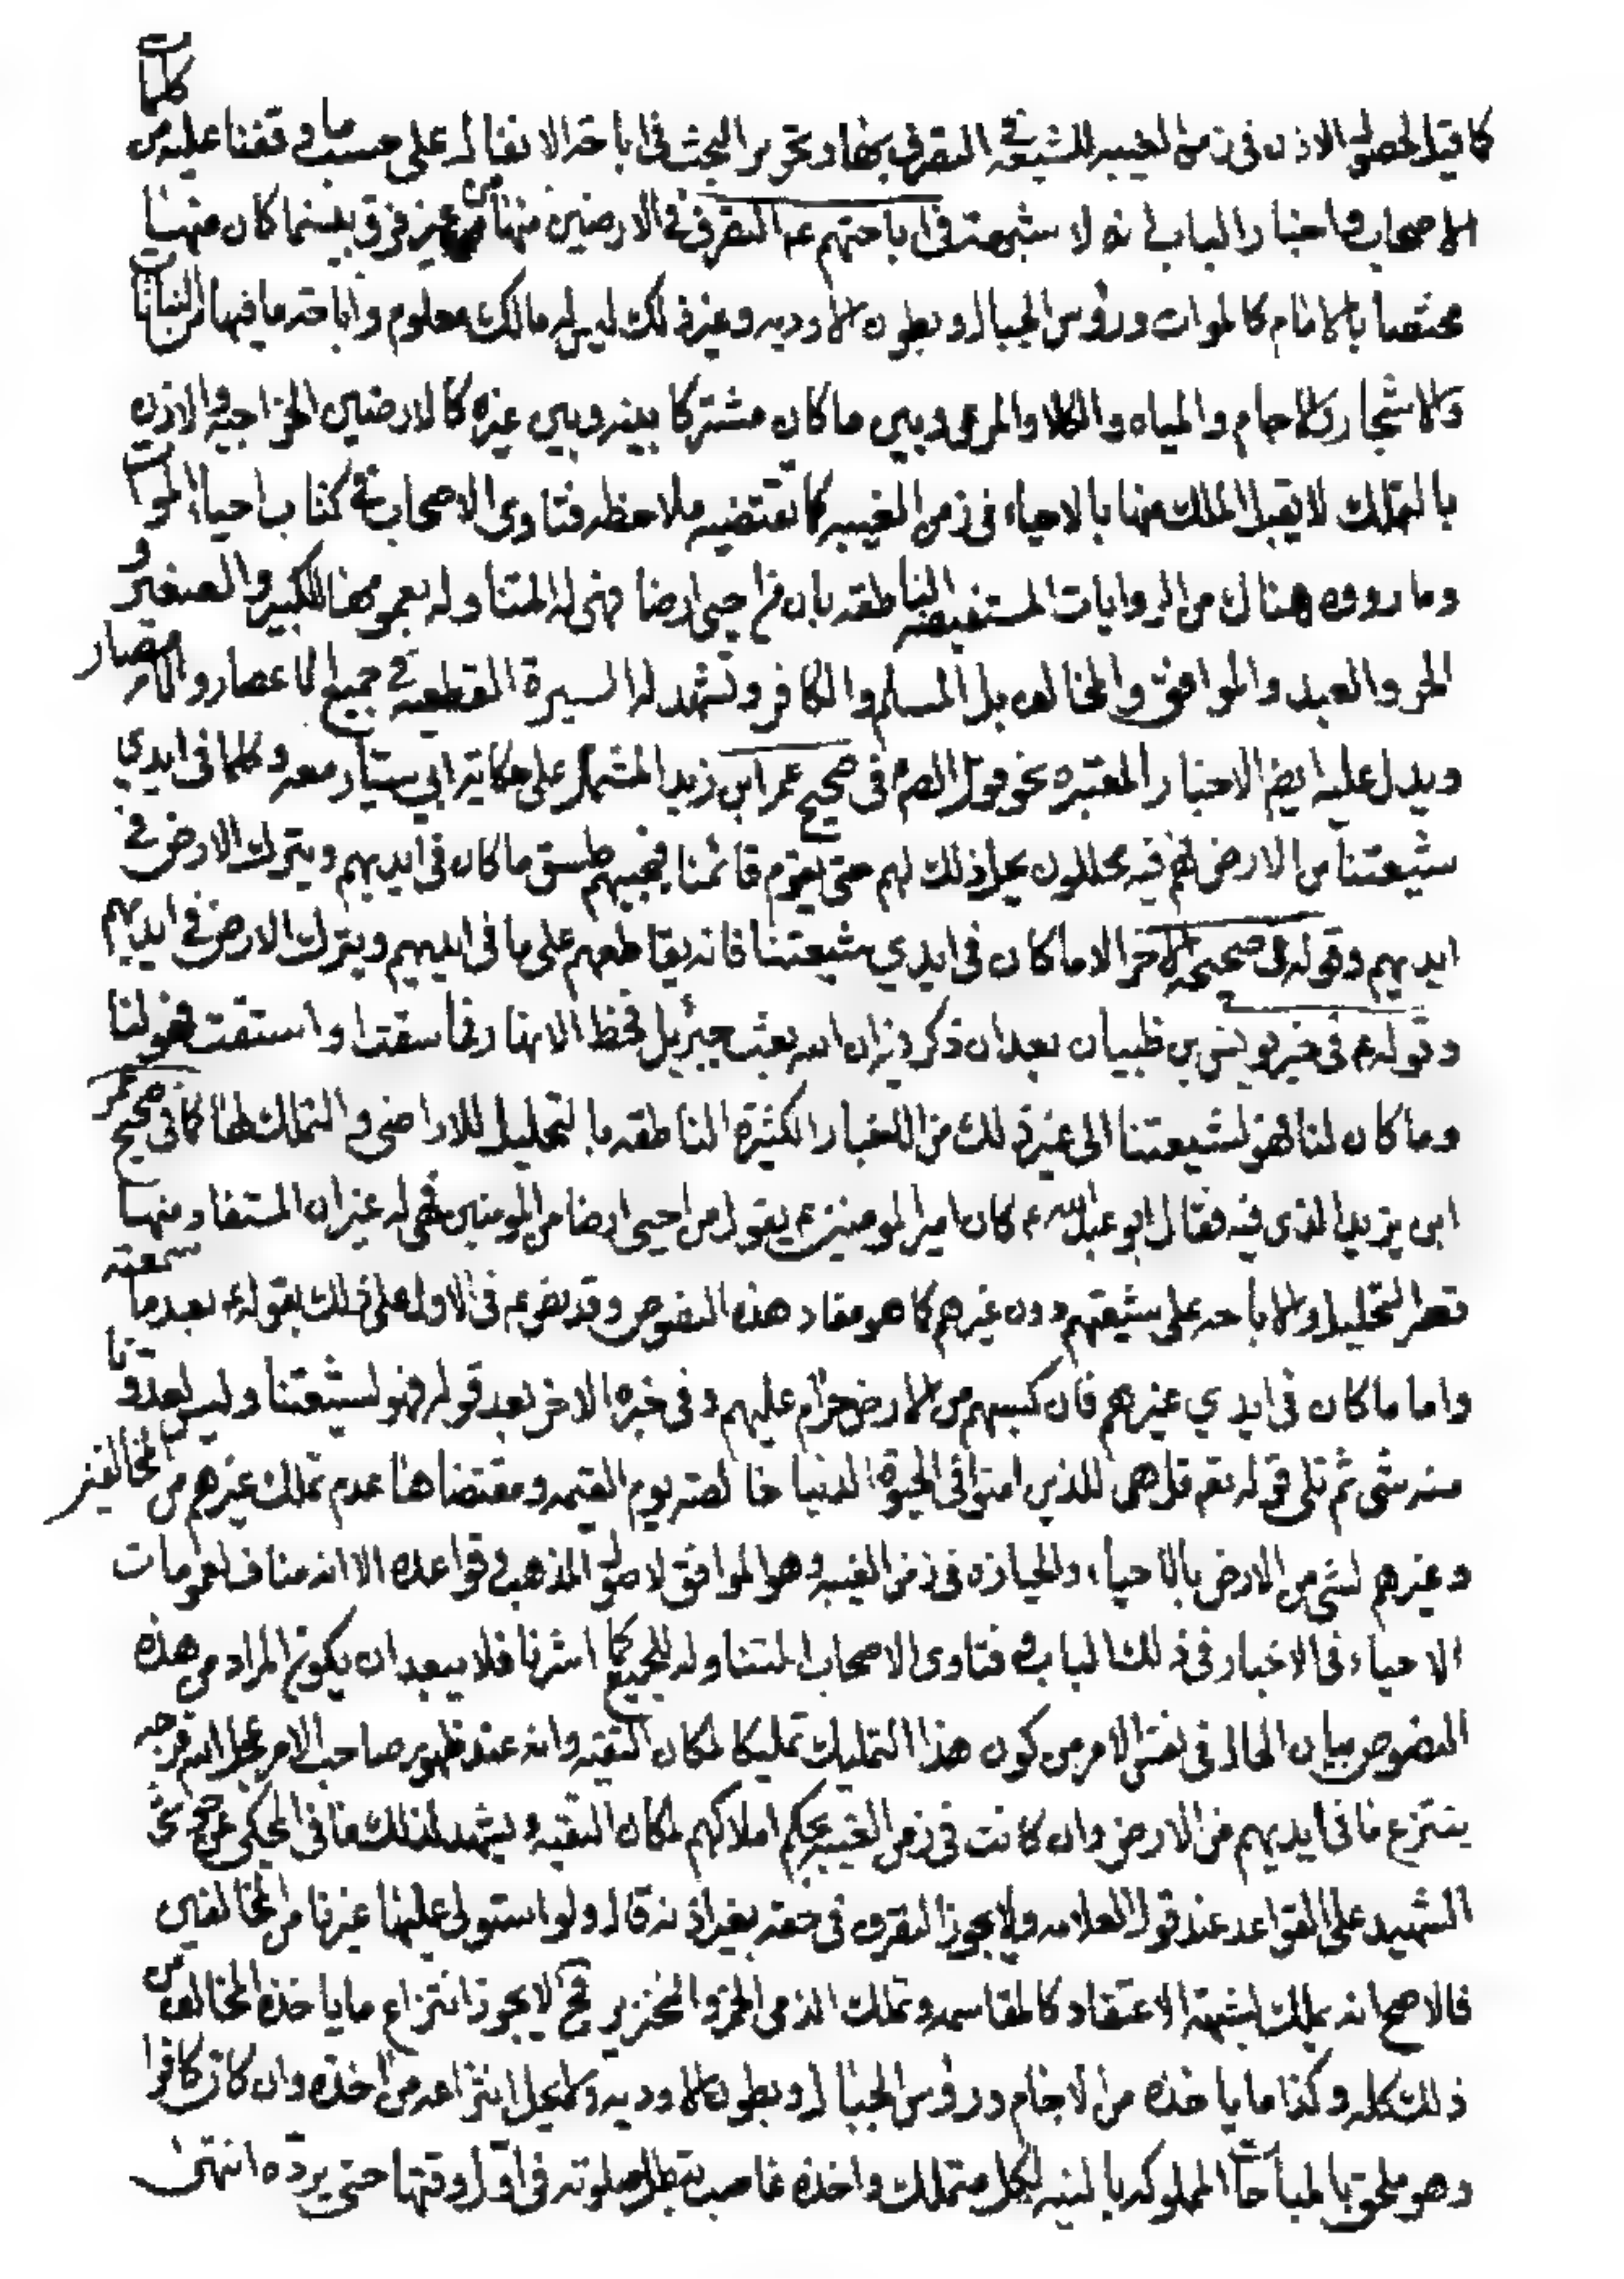 كلمات
كما قيل لحصول الاذن فى زمن الغيبه للشيعة فى التصرف بها وتحرير البحث فى اباحة الانفال على حسب ما وقفنا عليه من
الاصحاب واخبار الباب انه لا شبهة فى اباحتهم ع التصرف فى الارضين منها من غير فرق بينما كان منها
مختصا بالامام كالموات ورؤس الجبال وبطون الاوديه وغير ذلك ليس له مالك معلوم واباحة ما فيها من النباتات
والاشجار والاجام والمياه والكلا والمرعى وبين ما كان مشتركا بينه وبين غيره كالارضين الخراجيه والاذن
بالتملك لا يقبل الملك منها بالاحياء فى زمن الغيبه كما تقتضيه ملاحظه فتاوى الاصحاب فى كتاب احياء الموات
وما رووه هناك من الروايات المستفيضه الناطقه بان من احيى ارضا فهى له المتناوله بعمومها للكبير والصغير و
الحر والعبد والموافق والمخالف بل المسلم والكافر وتشهد له السيرة القطعيه فى جميع الاعصار والامصار
ويدل عليه ايضا الاخبار المعتبره نحو قول الصم فى صحيح عمر ابن زيد المشتمل على حكاية ابى سيار معه وكلما فى ايدي
شيعتنا من الارض فهم فيه محللون يحل ذلك لهم حتى يقوم قائمنا فيجبيهم طسق ما كان فى ايديهم ويترك الارض فى
ايديهم وقوله فى صحيحه الاخر الا ما كان فى ايدي شيعتنا فانه يقاطعهم على ما فى ايديهم ويترك الارض فى ايديهم
وقوله ع فى خبر يونس بن ظبيان بعد ان ذكر فيه ان الله بعث جبرئيل فحفظ الانهار فما سقت او استقت فهو لنا
وما كان لنا فهو لشيعتنا الى غير ذلك من الاخبار الكثيرة الناطقه بالتحليل للاراضى والتملك لها كما فى صحيح عمر
ابى يزيد الذى فيه فقال ابو عبد الله ع كان امير المومنين ع يقول من احيى ارضا من المومنين فهى له غير ان المستفاد منها
قصر التحليل والاباحه على شيعتهم دون غيرهم كما هو مفاد هذه النصوص وقد نص ع فى الاول على ذلك بقوله ع بعد ما سمعته
واما ما كان فى ايدي غيرهم فان كسبهم من الارض حرام عليهم وفى خبره الاخر بعد قوله فهو لشيعتنا وليس لعدونا
منه شى ثم تلى قوله تعم قل هى للذين امنوا فى الحيوة الدنيا خالصة يوم القيمه ومقتضاها عدم تملك غيرهم من المخالفين
وغيرهم لشى من الارض بالاحياء والحيازه فى زمن الغيبه وهو الموافق لاصول المذهب وقواعده الا انه مناف لعمومات
الاحياء فى الاخبار فى ذلك الباب و فتاوى الاصحاب المتناوله للجميع كما اشرنا فلا يبعد ان يكون المراد من هذه
النصوص بيان الحال فى نفس الامر من كون هذا التمليك تمليكا لمكان التقيه وانه عند ظهور صاحب الامر عجل الله فرجه
ينتزع ما فى ايديهم من الارض وان كانت فى زمن الغيبه بحكم املاكهم لمكان التقيه ويشهد لذلك ما فى المحكى عن حواشى
الشهيد على القواعد عند قول العلامه ولا يجوز التصرف فى حقه بغير اذنه قال ولو استولى عليها غيرنا من المخالفين
فالاصح انه يملك لشبهة الاعتقاد كالمقاسمه وتملك الذمى الخمر والخنزير فح لا يجوز انتزاع ما ياخذه المخالف من
ذلك كله وكذا ما ياخذه من الاجام ورؤس الجبال وبطون الاوديه لا يحل انتزاعه من اخذه وان كان كافرا
وهو ملحق بالمباحات المملوكه بالنيه لكل متملك واخذه غاصب تبطل صلوته فى اول وقتها حتى يرده انتهى